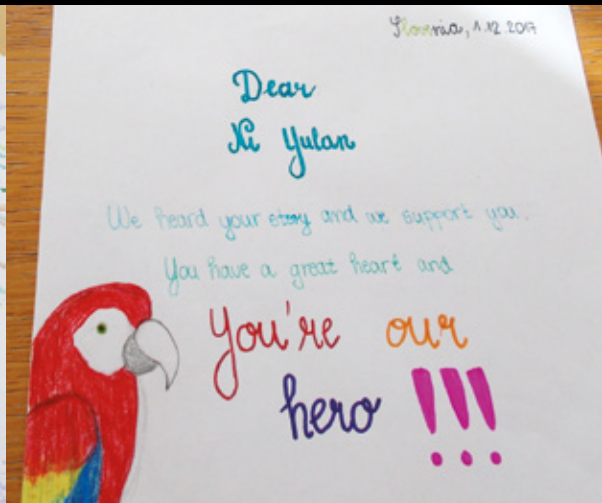 Slovenia, 1.12.2017
Dear
Ni Yulan
We heard your story and we support you.
You have a great heart and
You're our
hero !!!